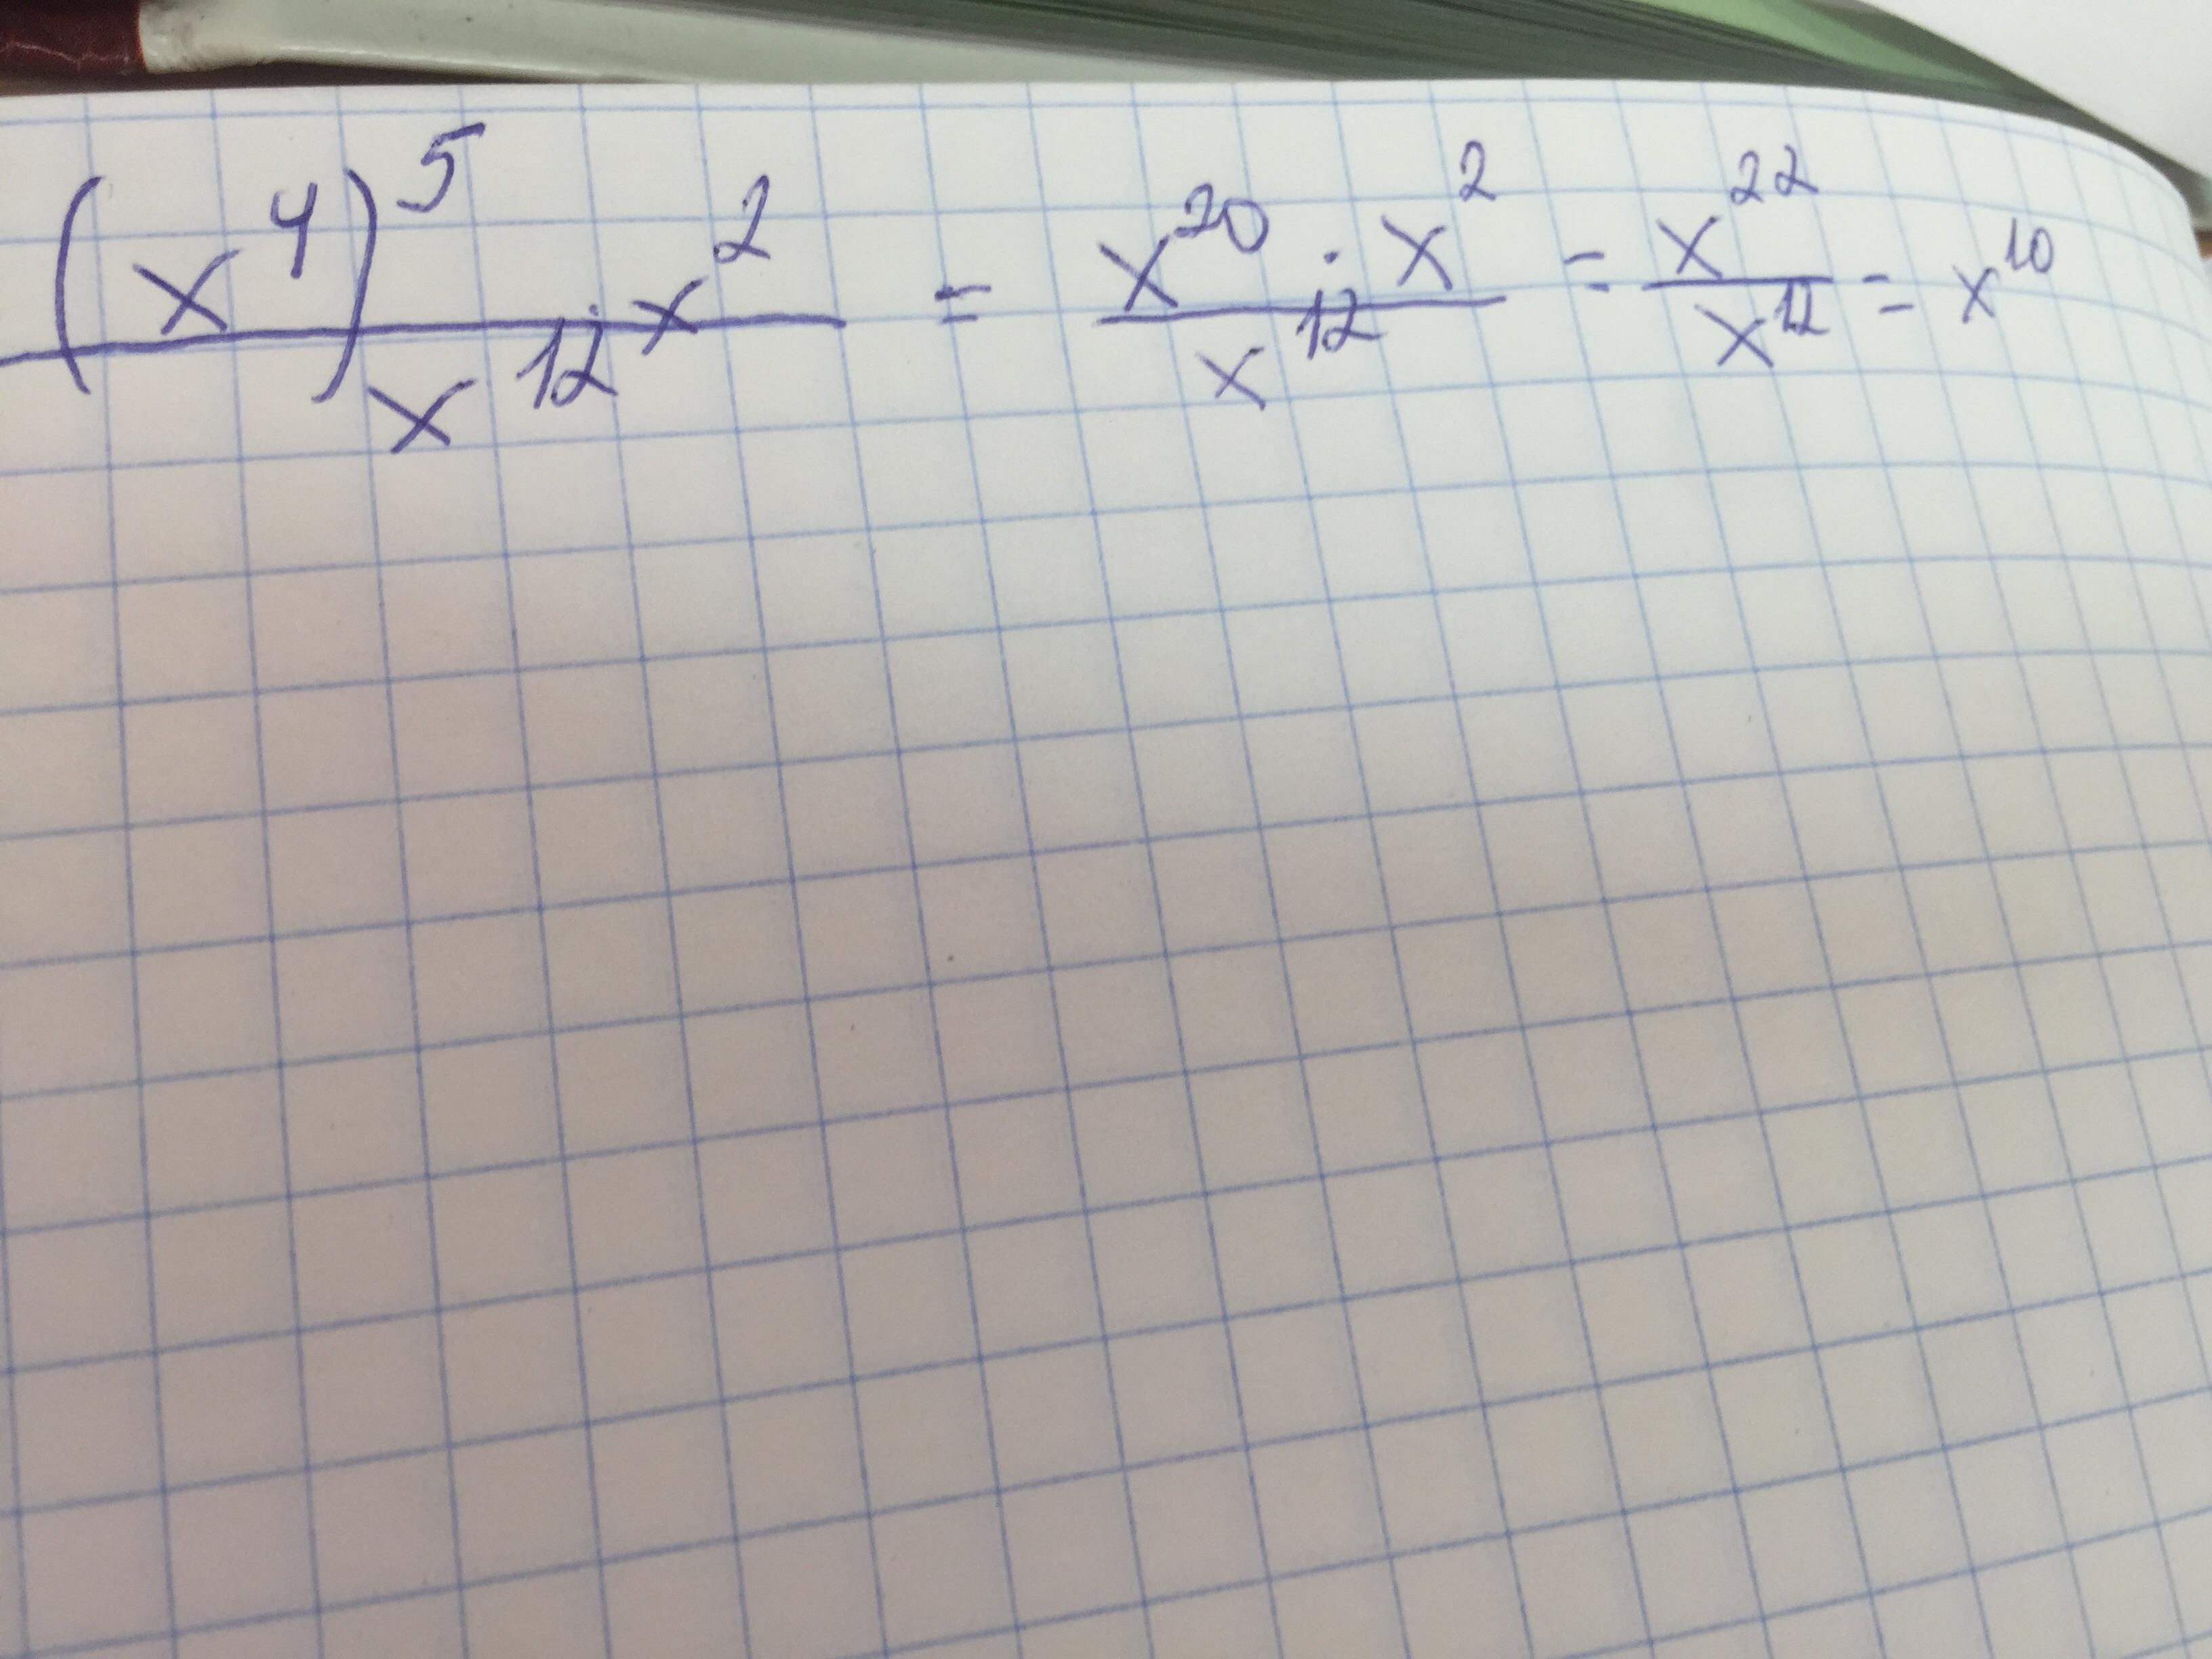 (x⁴)⁵ · x² / x¹² = x²⁰ · x² / x¹² = x²² / x¹² = x¹⁰